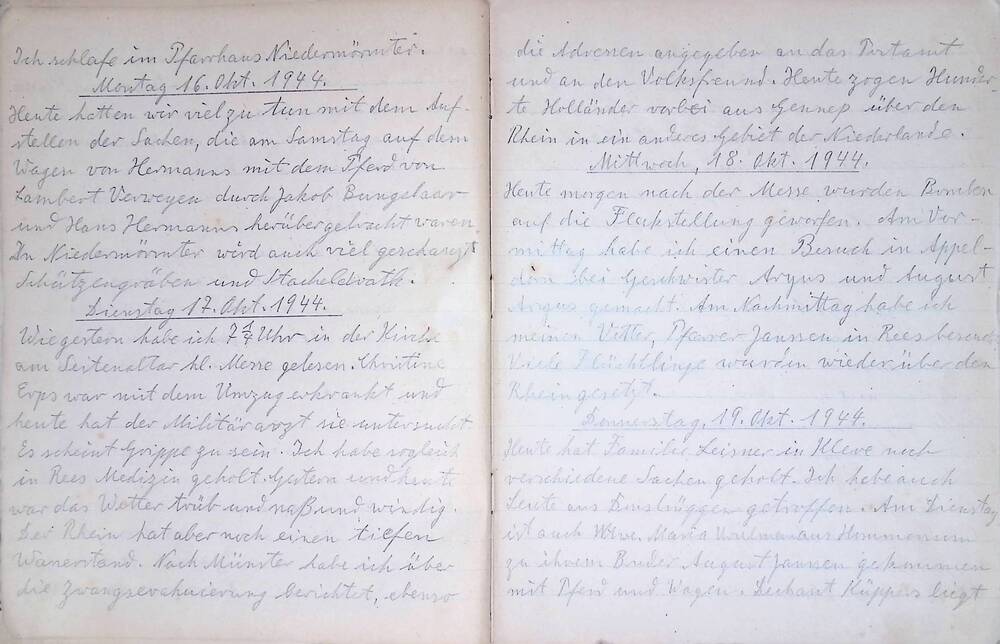 Ich schlafe im Pfarrhaus Niedermörmter.
Montag 16. Okt. 1944.
Heute hatten wir viel zu tun mit dem Auf-
stellen der Sachen, die am Samstag auf dem
Wagen von Hermanns mit dem Pferd von
Lambert Verweyen durch Jakob Bungelaar
und Hans Hermanns herübergebracht waren
In Niedermörmter wird auch viel geschanzt
Schützengräben und Stacheldraht.
Dienstag 17. Okt. 1944.
Wie gestern habe ich 7¼ Uhr in der Kirche
am Seitenaltar hl. Messe gelesen. Christine
Erps war mit dem Umzug erkrankt und
heute hat der Militärarzt sie untersucht
Es scheint Grippe zu sein. Ich habe sogleich
in Rees Medizin geholt. Gestern und heute
war das Wetter trüb und naß und windig.
Der Rhein hat aber noch einen tiefen
Wasserstand. Nach Münster habe ich über
die Zwangsevakuierung berichtet, ebenso
die Adressen angegeben an das Postamt
und an den Volksfreund. Heute zogen Hunder-
te Holländer vorbei aus Gennep über den
Rhein in ein anderes Gebiet der Niederlande.
Mittwoch, 18. Okt. 1944.
Heute morgen nach der Messe wurden Bomben
auf die Flakstellung geworfen. Am Vor-
mittag habe ich einen Besuch in Appel-
dorn bei Geschwister Aryus und August
Aryus gemacht. Am Nachmittag habe ich
meinen Vetter, Pfarrer Janssen in Rees besucht
Viele Flüchtlinge wurden wieder über den
Rhein gesetzt.
Donnerstag, 19. Okt. 1944.
Heute hat Familie Leisner in Kleve noch
verschiedene Sachen geholt. Ich habe auch
Leute aus getroffen. Am Dienstag
ist auch Wwe. Maria aus Hommersum
zu ihrem Bruder August Janssen gekommen
mit Pferd und Wagen. Dechant Küppers liegt